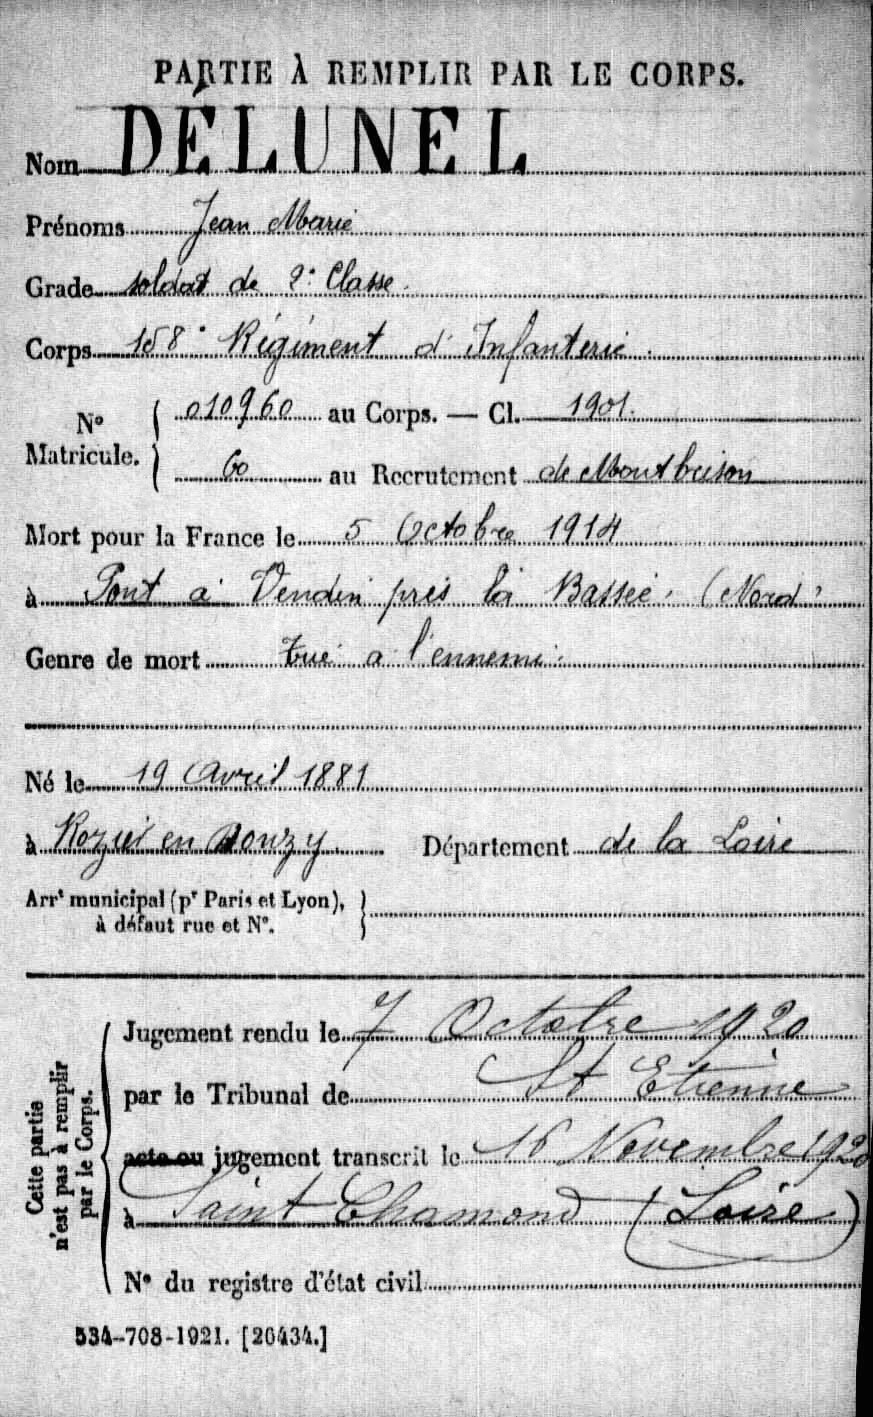 PARTIE À REMPLIR PAR LE CORPS.
Nom DÉLUNEL
Prénoms Jean Marie
Grade soldat de 2e Classe.
Corps 158e Régiment d'Infanterie.
No Matricule. { 010960 au Corps. — Cl. 1901.
60 au Recrutement de Montbrison
Mort pour la France le 5 Octobre 1914
à Pont à Vendin près la Bassée. (Nord)
Genre de mort tué à l'ennemi.
Né le 19 Avril 1881
à Rozier en Donzy. Département de la Loire
Arrt municipal (pr Paris et Lyon),
à défaut rue et No.
Cette partie
n'est pas à remplir
par le Corps.
Jugement rendu le 7 Octobre 1920
par le Tribunal de St Etienne
acte ou jugement transcrit le 16 Novembre 1920
à Saint Chamond (Loire)
No du registre d'état civil
534-708-1921. [26434.]